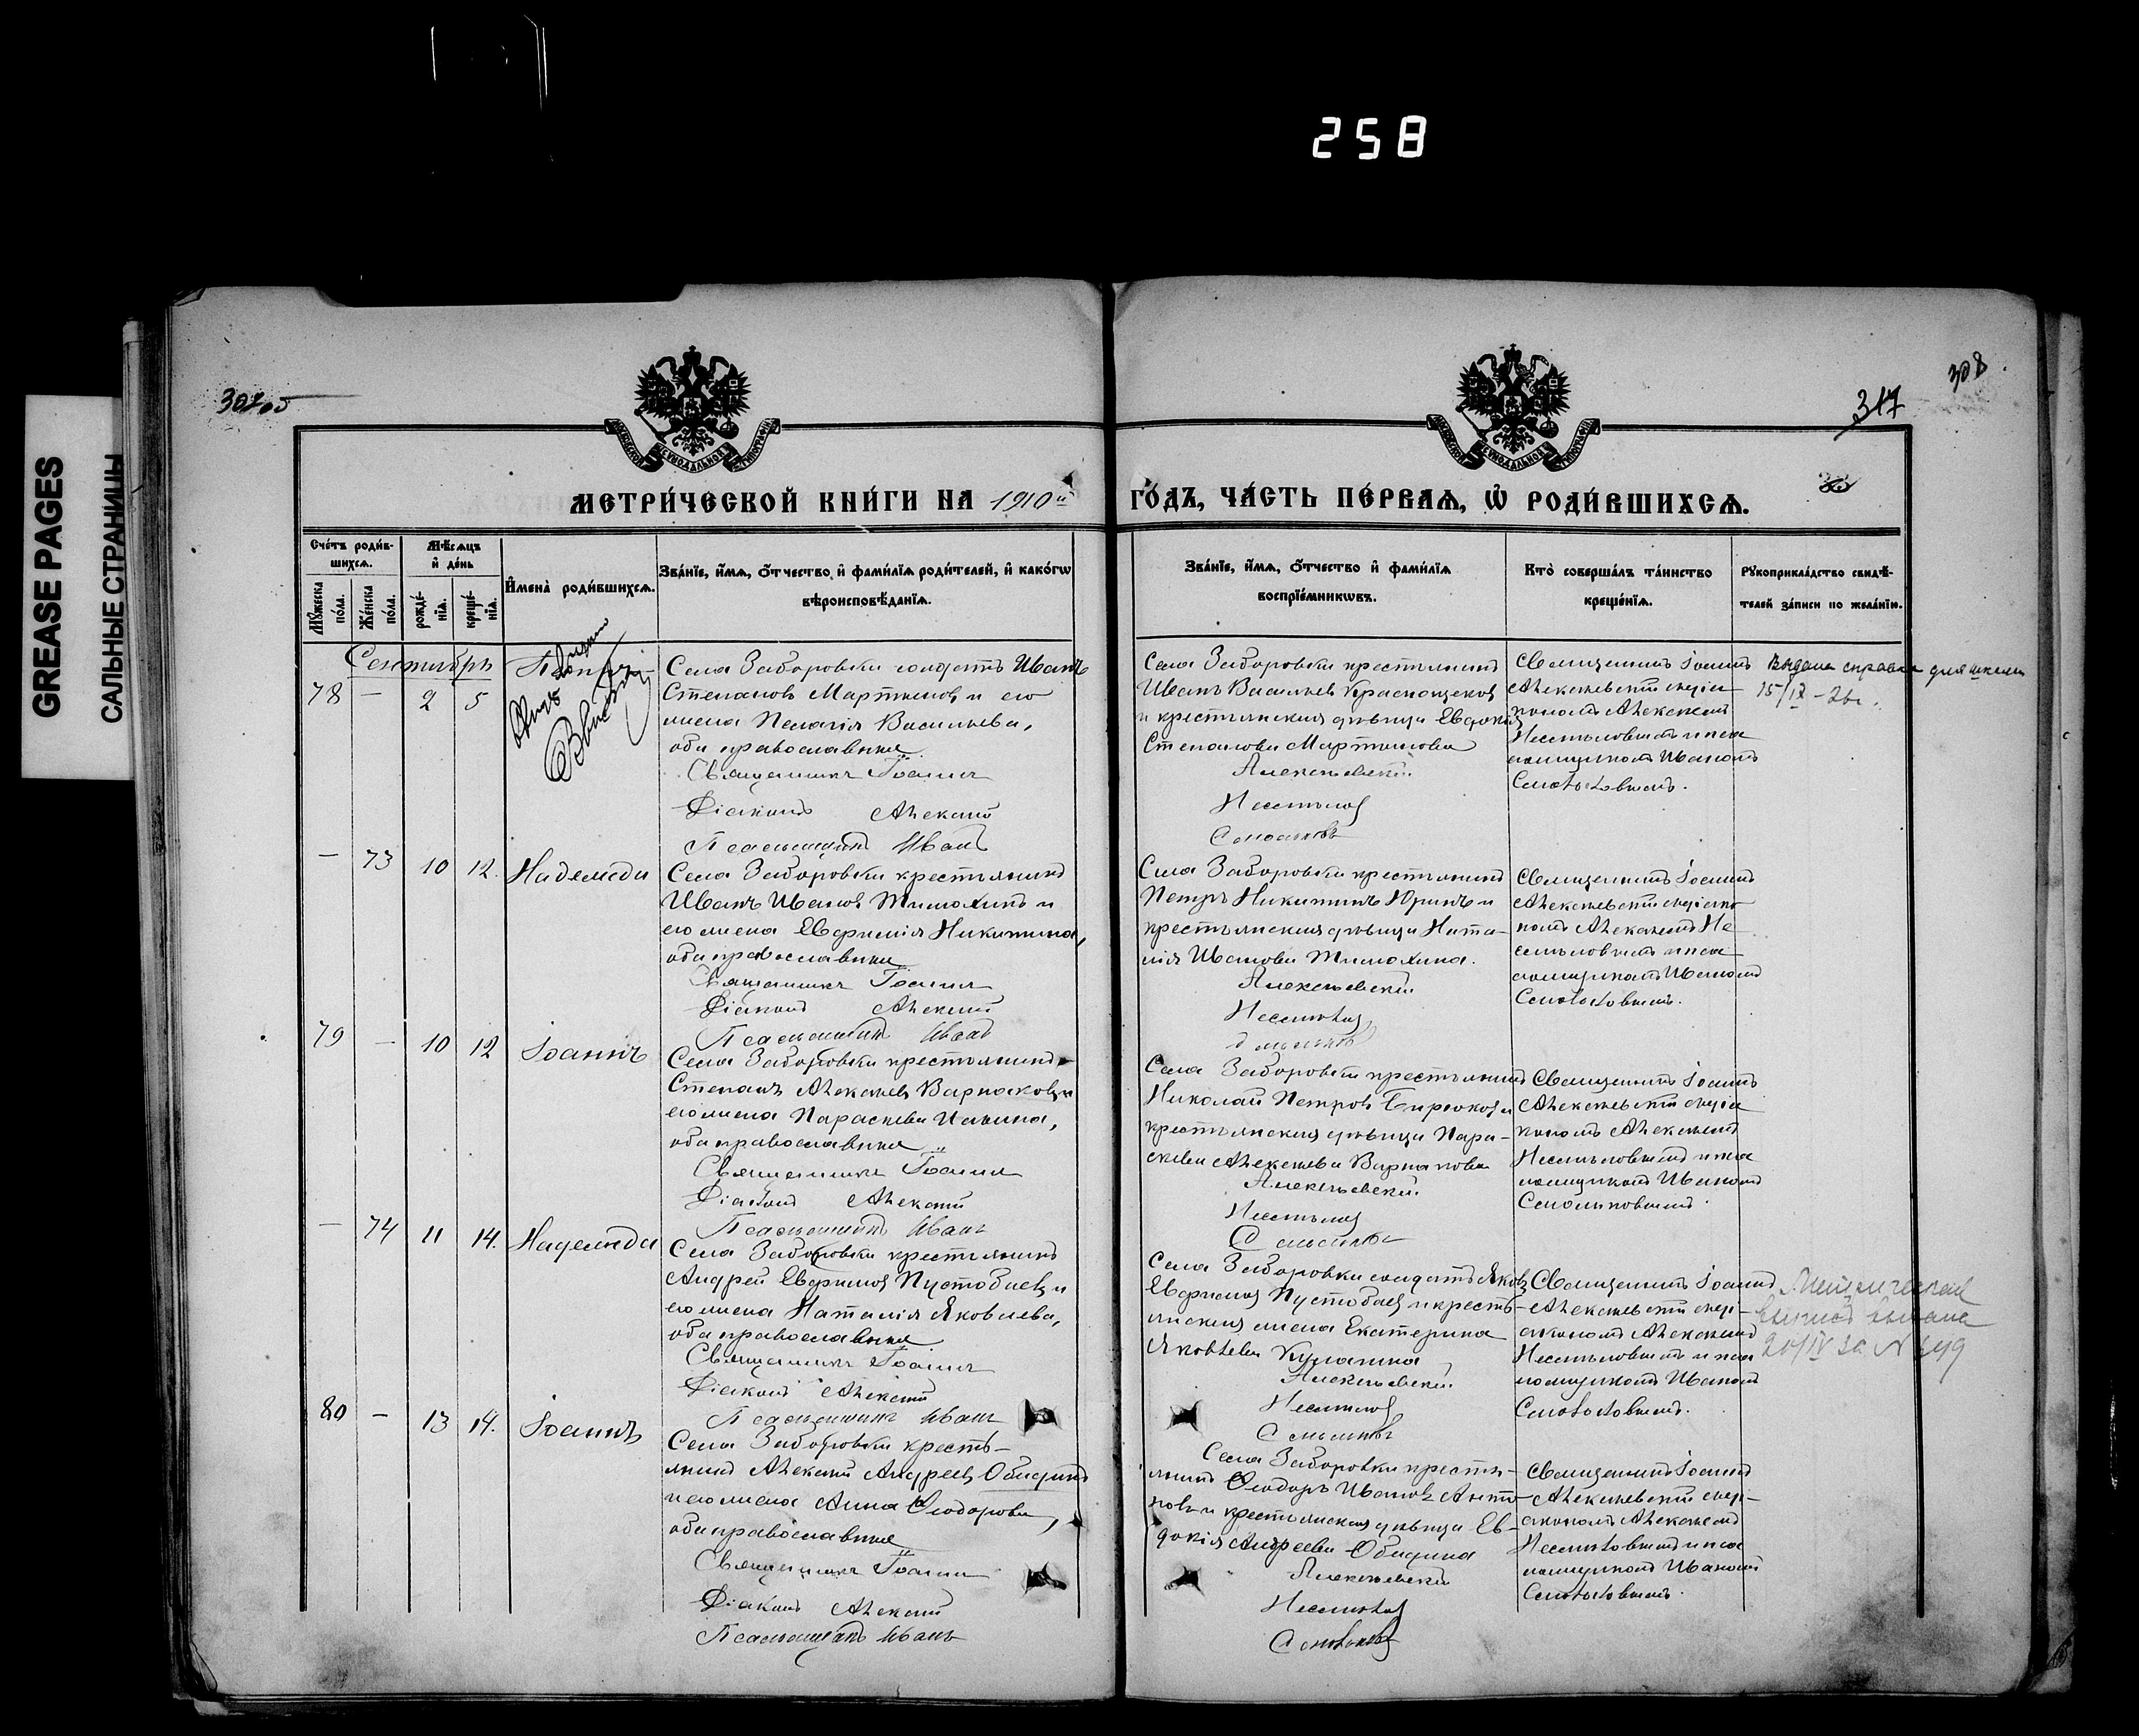 258
GREASE PAGES
САЛЬНЫЕ СТРАНИЦЫ
308
317
МЕТРИ́ЧЕСКОЙ КНИ́ГИ НА 1910й
ГО́ДЪ, ЧА́СТЬ ПЕ́РВАѦ, Ѡ҆ РОДИ́ВШИХСѦ.
Сче́тъ роди́в-
шихсѧ.
Мѣ́сѧцъ
и҆ де́нь
Мꙋ́жеска по́ла.
Же́нска по́ла.
рожде́-нїѧ.
креще́-нїѧ.
И҆мена̀ роди́вшихсѧ.
Зва́нїе, и҆́мѧ, ѻ҆́тчество, и҆ фами́лїѧ роди́телей, и҆ како́гѡ
вѣроисповѣ́данїѧ.
Зва́нїе, и҆́мѧ, ѻ҆́тчество и҆ фами́лїѧ
воспрїе́мникѡвъ.
Кто̀ соверша́лъ та́инство
креще́нїѧ.
Рꙋкоприкла́дство свидѣ́-
телей за́писи по жела́нїю.
Сентябрь
78 — 2 5
Села Заборовки солдатъ Иванъ
Степановъ Мартыновъ и его
жена Пелагія Васильева,
оба православные
Священникъ Іоаннъ
Діаконъ Алексій
Псаломщикъ Иванъ
Села Заборовки крестьянинъ
Иванъ Васильевъ Краснощековъ
и крестьянская дѣвица Евдокія
Степанова Мартынова
Алексѣевскій
Несмѣловъ
Смольковъ
Священникъ Іоаннъ
Алексѣевскій съ діа-
кономъ Алексѣемъ
Несмѣловымъ и пса-
ломщикомъ Иваномъ
Смольковымъ.
Выдана справка для школы
15/IX-26г.
— 73 10 12. Надежда
Села Заборовки крестьянинъ
Иванъ Ивановъ Тимохинъ и
его жена Евфимія Никитина,
оба православные
Священникъ Іоаннъ
Діаконъ Алексій
Псаломщикъ Иванъ
Села Заборовки крестьянинъ
Петръ Никитинъ Юринъ и
крестьянская дѣвица Ната-
лія Иванова Тимохина.
Алексѣевскій
Несмѣловъ
Смольковъ
Священникъ Іоаннъ
Алексѣевскій съ діако-
номъ Алексѣемъ Не-
смѣловымъ и пса-
ломщикомъ Иваномъ
Смольковымъ.
79 — 10 12 Іоаннъ
Села Заборовки крестьянинъ
Степанъ Алексѣевъ Варнаковъ и
его жена Параскева Ильина,
оба православные
Священникъ Іоаннъ
Діаконъ Алексій
Псаломщикъ Иванъ
Села Заборовки крестьянинъ
Николай Петровъ Бирюковъ и
крестьянская дѣвица Пара-
скева Алексѣева Варнакова
Алексѣевскій
Несмѣловъ
Смольковъ
Священникъ Іоаннъ
Алексѣевскій съ діа-
кономъ Алексѣемъ
Несмѣловымъ и пса-
ломщикомъ Иваномъ
Смольковымъ
— 74 11 14. Надежда
Села Заборовки крестьянинъ
Андрей Евфимовъ Пустобаевъ и
его жена Наталія Яковлева,
оба православные
Священникъ Іоаннъ
Діаконъ Алексій
Псаломщикъ Иванъ
Села Заборовки солдатъ Яковъ
Евфимовъ Пустобаевъ и кресть-
янская жена Екатерина
Яковлева
Алексѣевскій
Несмѣловъ
Смольковъ
Священникъ Іоаннъ
Алексѣевскій съ ді-
акономъ Алексѣемъ
Несмѣловымъ и пса-
ломщикомъ Иваномъ
Смольковымъ.
80 — 13 14. Іоаннъ
Села Заборовки кресть-
янинъ Алексій Андреевъ Обидинъ
и его жена Анна Ѳеодорова,
оба православные
Священникъ Іоаннъ
Діаконъ Алексій
Псаломщикъ Иванъ
Села Заборовки кресть-
янинъ Ѳеодоръ Ивановъ Анто-
новъ и крестьянская дѣвица Ев-
докія Андреева Обидина
Алексѣевскій
Несмѣловъ
Смольковъ
Священникъ Іоаннъ
Алексѣевскій съ ді-
акономъ Алексѣемъ
Несмѣловымъ и пса-
ломщикомъ Иваномъ
Смольковымъ.